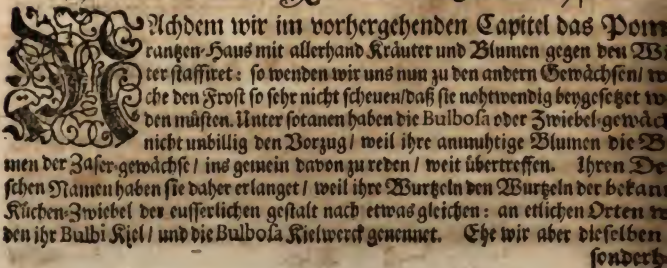 NAchdem wir im vorhergehenden Capitel das Pom
rantzen-Haus mit allerhand Kräuter und Blumen gegen den Wi
ter staffiret: so wenden wir uns nun zu den andern Gewächsen/ w
che den Frost so sehr nicht scheuen/daß sie nohtwendig beygesetzet w
den müsten. Unter sotanen haben die Bulbosa oder Zwiebel-gewäc
nicht unbillig den Vorzug/ weil ihre anmuhtige Blumen die B
men der Zaser-gewächse/ ins gemein davon zu reden/ weit übertreffen. Ihren De
schen Namen haben sie daher erlanget/ weil ihre Wurtzeln den Wurtzeln der bekan
Küchen-Zwiebel der eusserlichen gestalt nach etwas gleichen: an etlichen Orten w
den ihr Bulbi Kiel/ und die Bulbosa Kielwerck genennet. Ehe wir aber dieselben
sonderh